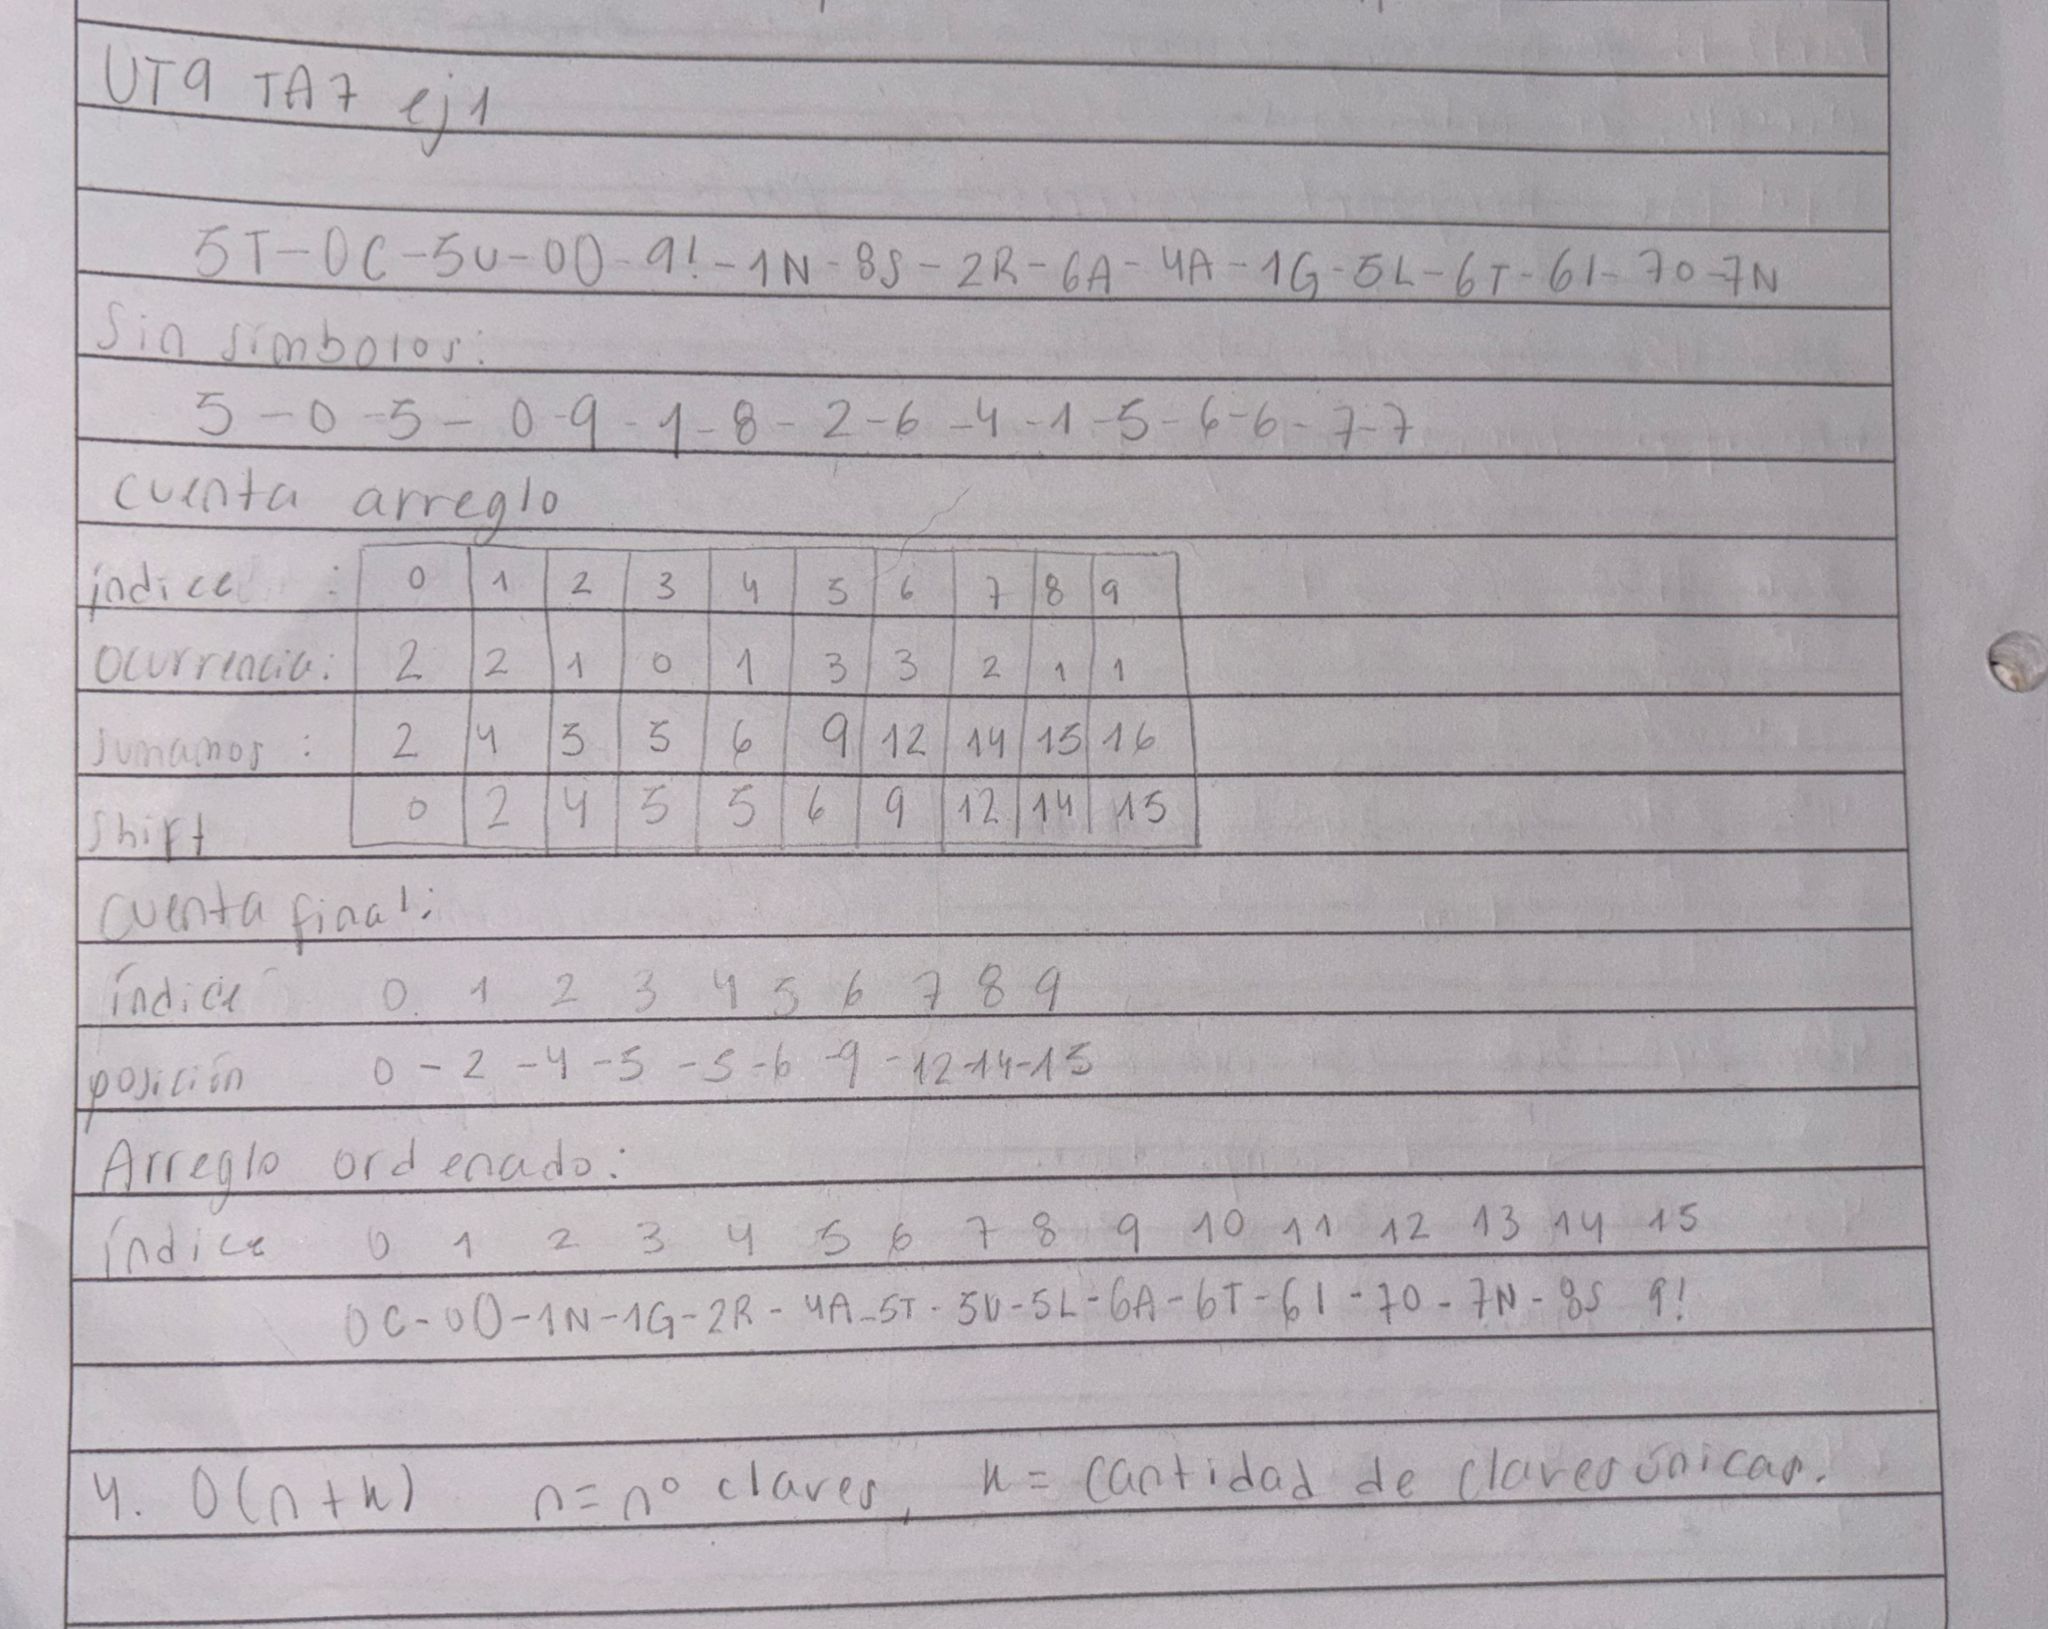 UT9 TA7 ej1
5T-0C-5U-0O-9!-1N-8S-2R-6A-4A-1G-5L-6T-6I-7O-7N
Sin símbolos:
5-0-5-0-9-1-8-2-6-4-1-5-6-6-7-7
cuenta arreglo
índice : 0 1 2 3 4 5 6 7 8 9
Ocurrencia: 2 2 1 0 1 3 3 2 1 1
sumamos : 2 4 5 5 6 9 12 14 15 16
shift 0 2 4 5 5 6 9 12 14 15
cuenta final:
índice 0 1 2 3 4 5 6 7 8 9
posición 0-2-4-5-5-6-9-12-14-15
Arreglo ordenado:
índice 0 1 2 3 4 5 6 7 8 9 10 11 12 13 14 15
0C-0O-1N-1G-2R-4A-5T-5U-5L-6A-6T-6I-7O-7N-8S 9!
4. O(n+k) n=n° claves, k= cantidad de claves únicas.